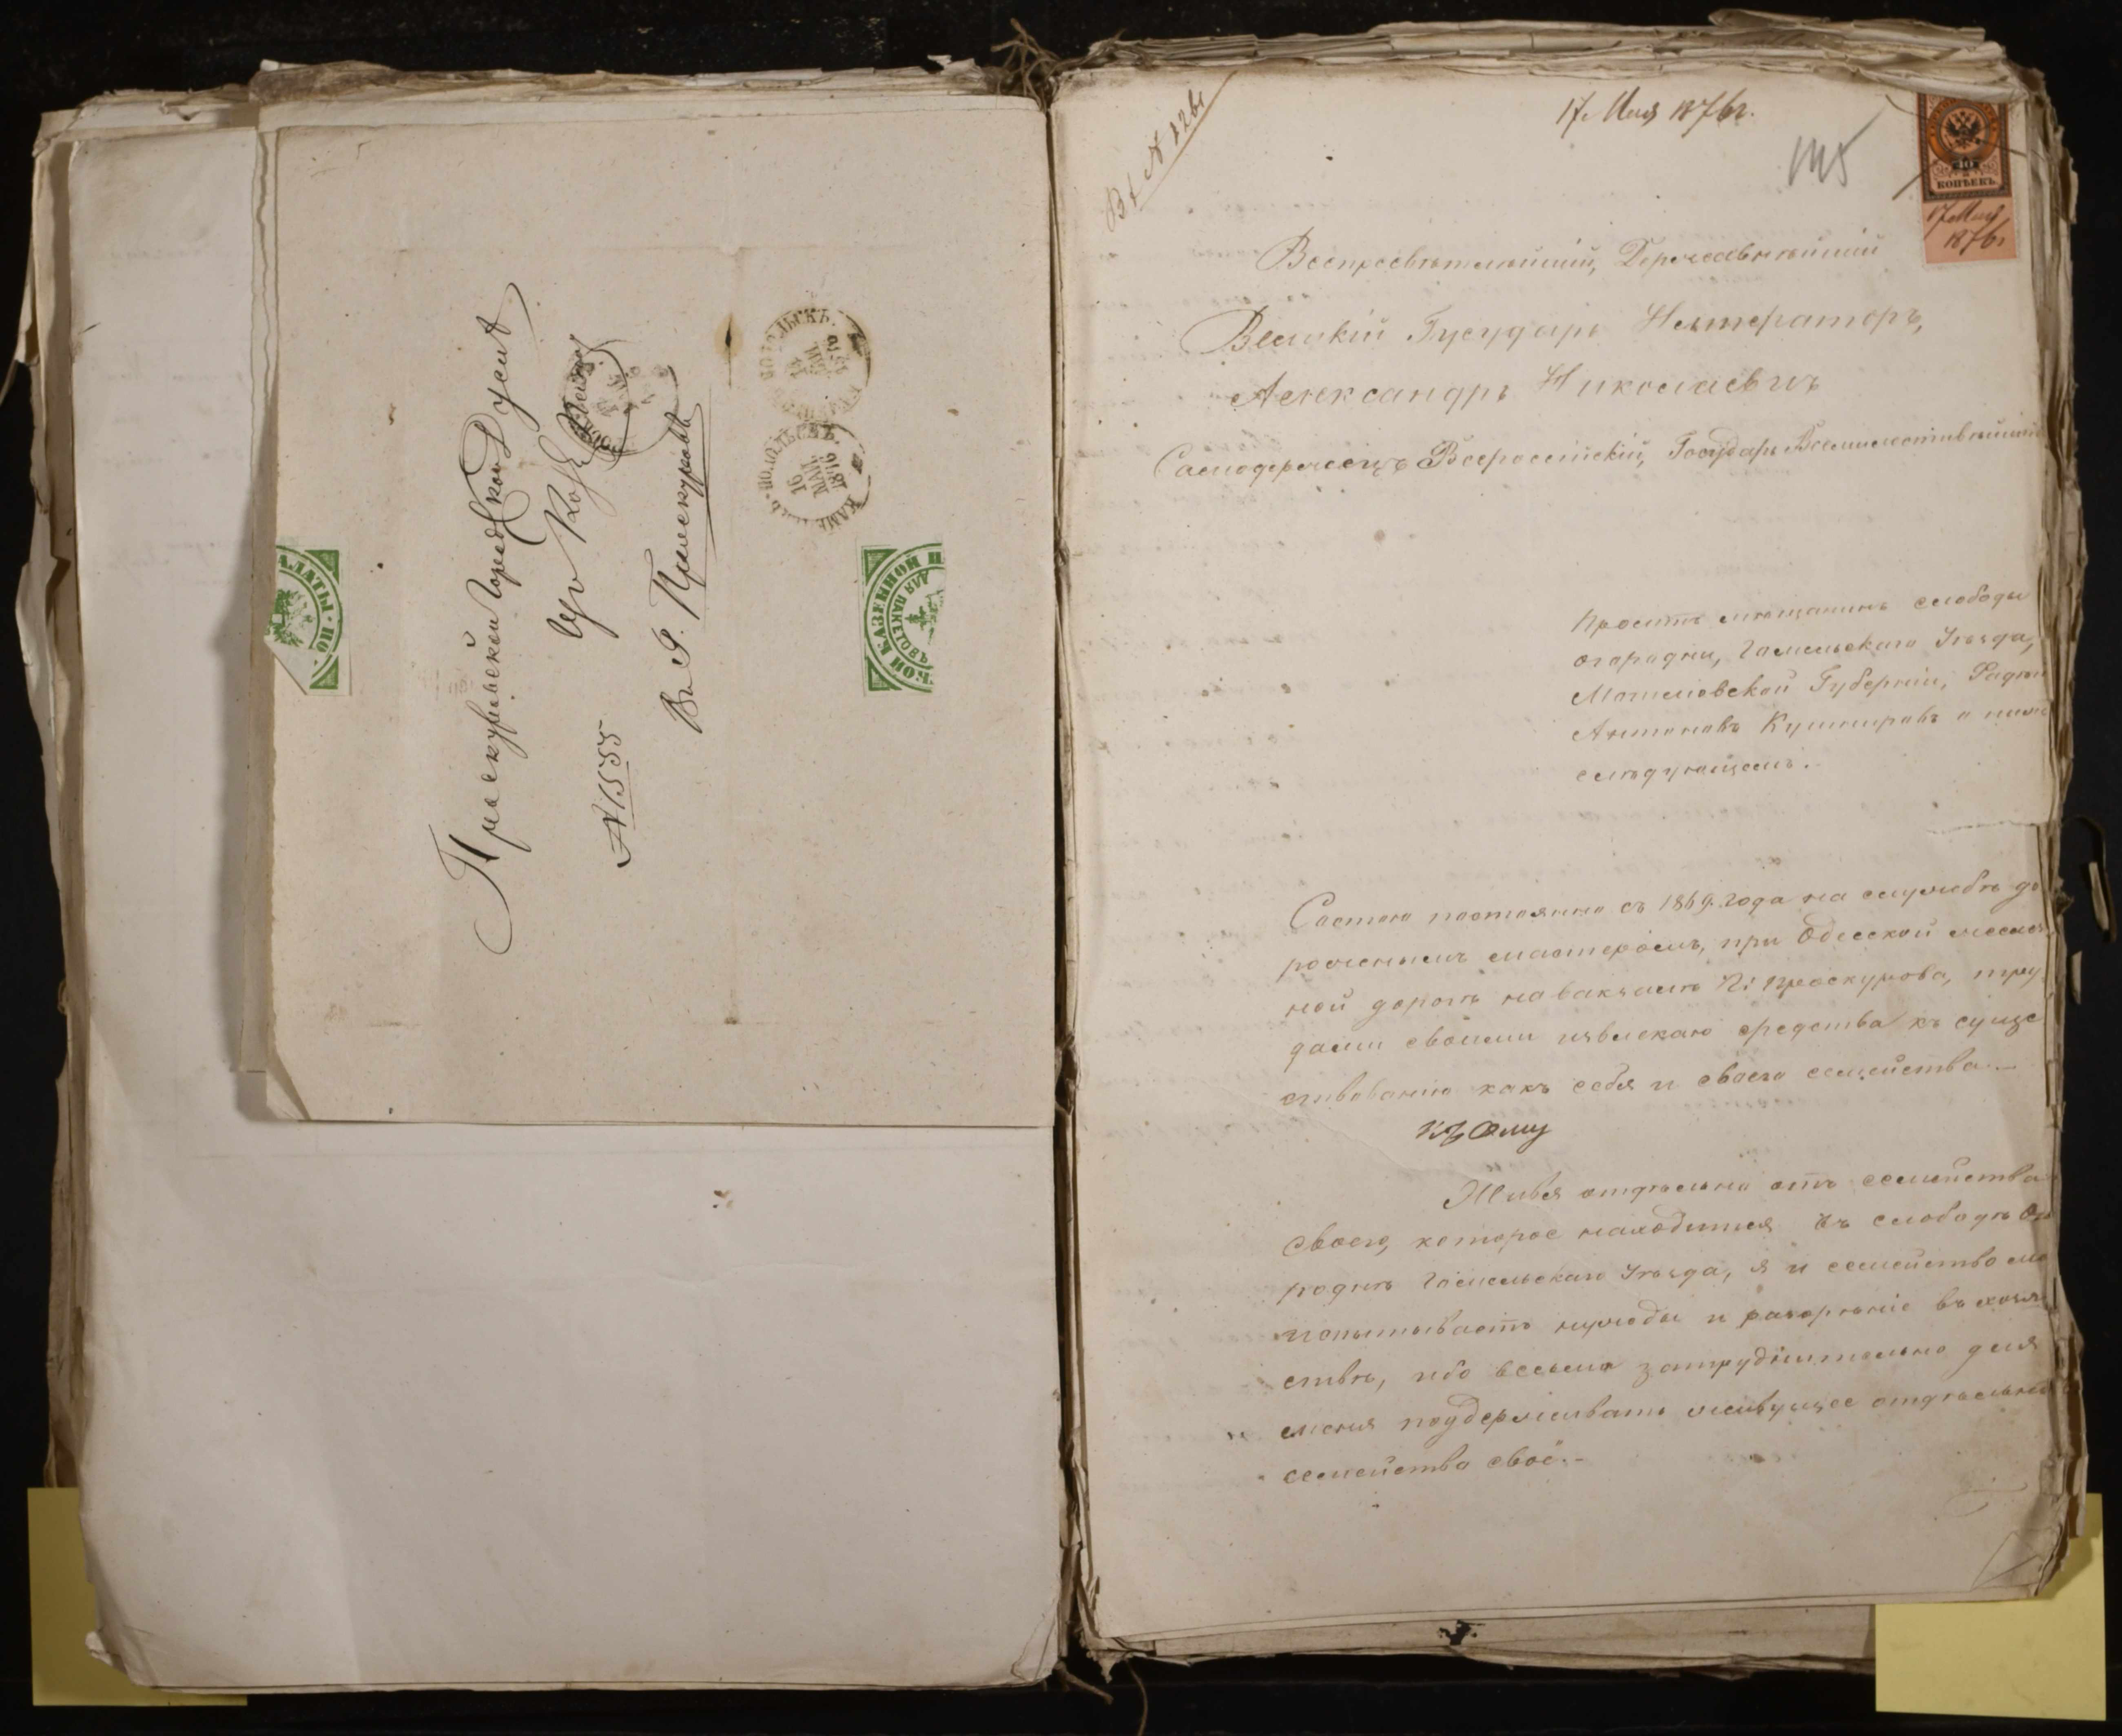 Проскуровской Городской Думѣ
№ 1555
В г. Проскуровѣ
КАМЕНЕЦЪ-ПОДОЛЬСКЪ.
16
МАЯ
1876
КАЗЕННОЙ
ДЛЯ ПАКЕТОВЪ
ПАЛАТЫ
Вх № 1261
17. Мая 1876 г.
145
КОПѢЕКЪ
17 Мая
1876
Всепресвѣтлѣйшій, Державнѣйшій
Великій Государь Императоръ,
Александръ Николаевичъ
Самодержецъ Всероссійскій, Государь Всемилостивѣйшій
Проситъ мѣщанинъ слободы
огородни, Гомельскаго Уѣзда,
Могилевской Губерніи,
Антоновъ Кушнировъ о
слѣдующемъ.
Состою постоянно съ 1869. года на службѣ до
рожнымъ мастеромъ, при Одесской желѣз
ной дорогѣ на вакзалѣ Г: Проскурова, тру
дами своими извлекаю средства къ суще
ствованію какъ себя и своего семейства. —
Живя отдѣльно отъ семейства
своего, которое находится въ слободѣ Ого
роднѣ Гомельскаго Уѣзда, я и семейство мо
испытываетъ нужды и разорѣніе въ хозяй
ствѣ, ибо весьма затруднительно для
меня поддерживать живущее отдѣльно
семейство своё. –